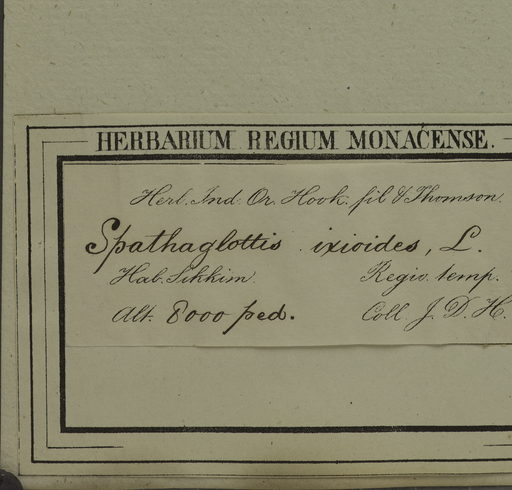 HERBARIUM REGIUM MONACENSE.
Herb. Ind. Or. Hook. fil & Thomson.
Spathaglottis ixioides, L.
Hab. Sikkim Regio. temp.
Alt. 8000 ped. Coll. J. D. H.